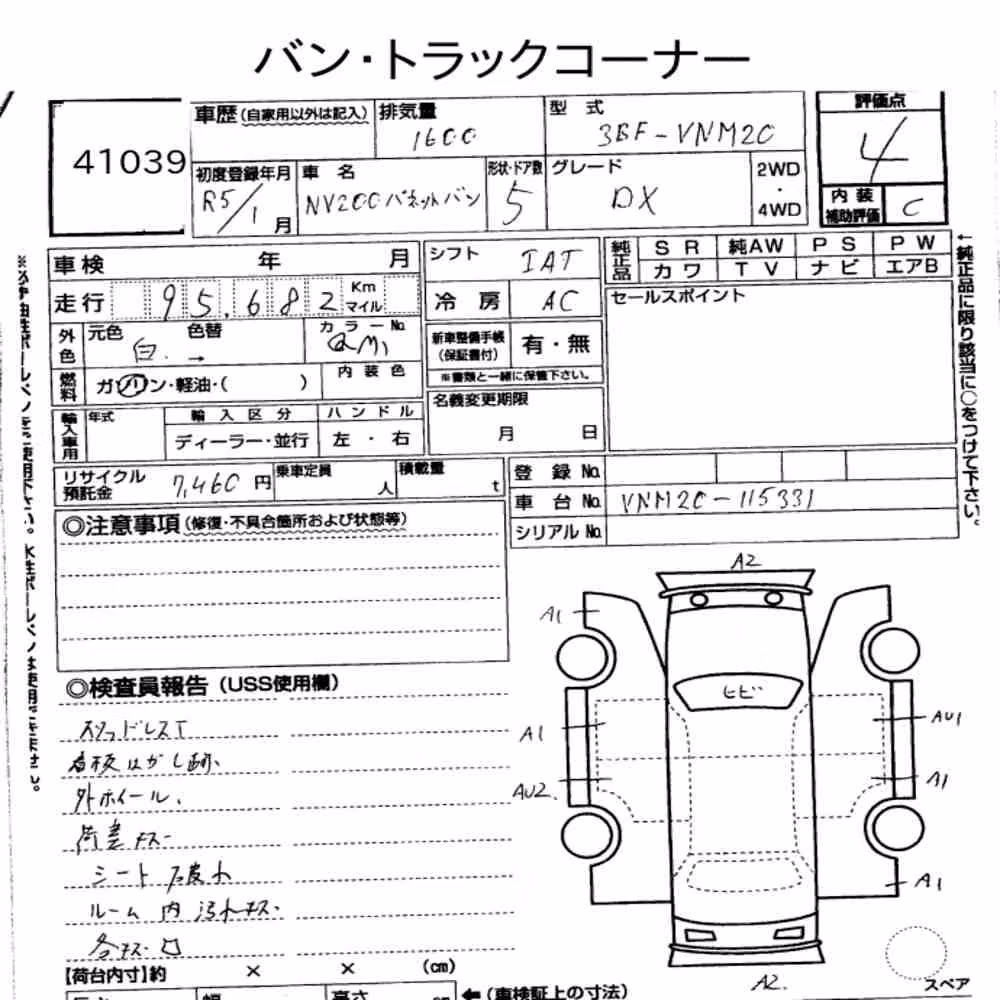 バン・トラックコーナー
41039
車歴(自家用以外は記入) 排気量 1600 型式 3BF-VNM20 評価点 4
初度登録年月 R5/1月 車名 NV200バネットバン 形状・ドア数 5 グレード DX 2WD・4WD 内装補助評価 C
車検 年 月 シフト IAT 純正品 SR 純AW PS PW
カワ TV ナビ エアB
走行 95,682 Km マイル 冷房 AC セールスポイント
外色 元色 白. 色替 → カラーNo. QM1 新車整備手帳(保証書付) 有・無
※書類と一緒に保管下さい。
燃料 ガソリン・軽油・( ) 内装色
名義変更期限 月 日
輸入車用 年式 輸入区分 ディーラー・並行 ハンドル 左・右
リサイクル預託金 7,460円 乗車定員 人 積載量 t
登録No.
車台No. VNM20-115331
シリアルNo.
◎注意事項(修復・不具合箇所および状態等)
←純正品に限り該当に○をつけて下さい。
A2
A1
ヒビ
A1
AU1
AU2.
A1
A1
A2.
スペア
◎検査員報告(USS使用欄)
スタッドレスT
看板はがし跡、
外ホイール、
荷差キズー
シート
ルーム内汚れキズー
各キズー凹
【荷台内寸】約 × × (cm)
長さ 幅 高さ cm ←(車検証上の寸法)